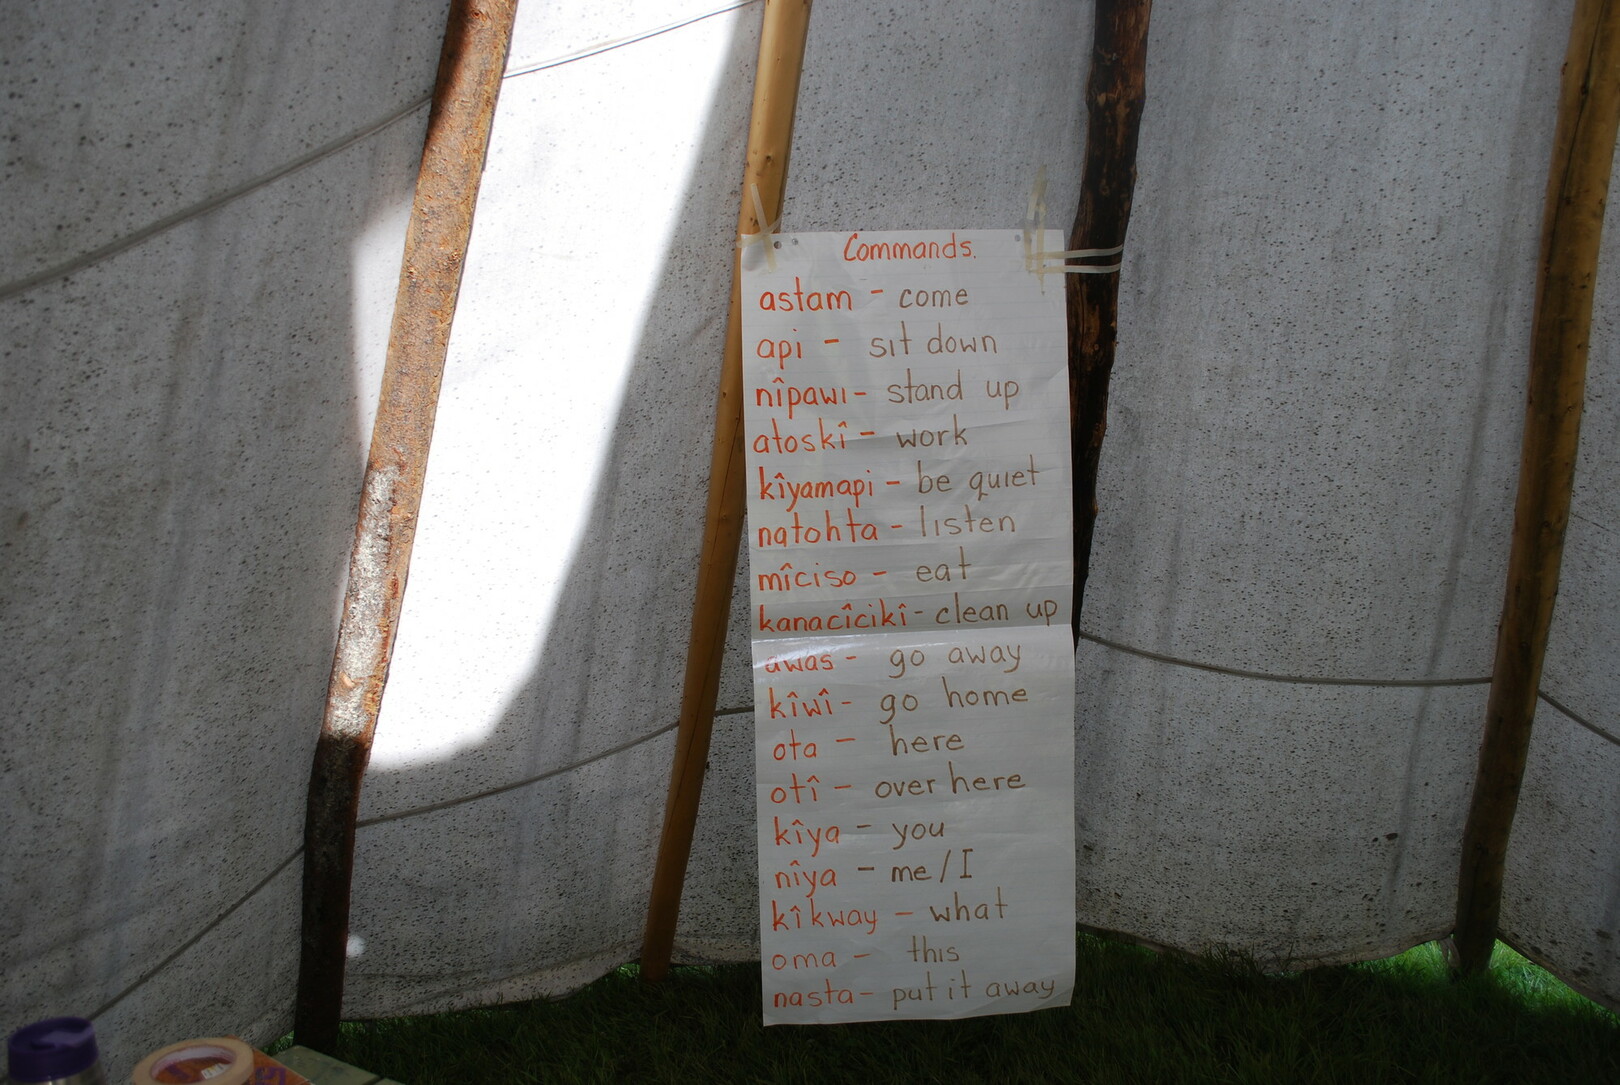 Commands.
astam - come
api - sit down
nîpawi - stand up
atoskî - work
kîyamapi - be quiet
natohta - listen
mîciso - eat
kanacîcikî - clean up
awas - go away
kîwî - go home
ota - here
otî - over here
kîya - you
nîya - me/I
kîkway - what
oma - this
nasta - put it away